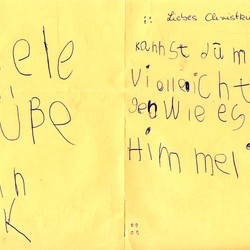 ele
üße
in
K
Liebes Christki
kannst dü m
Violleicht
gen Wie es
Himmel